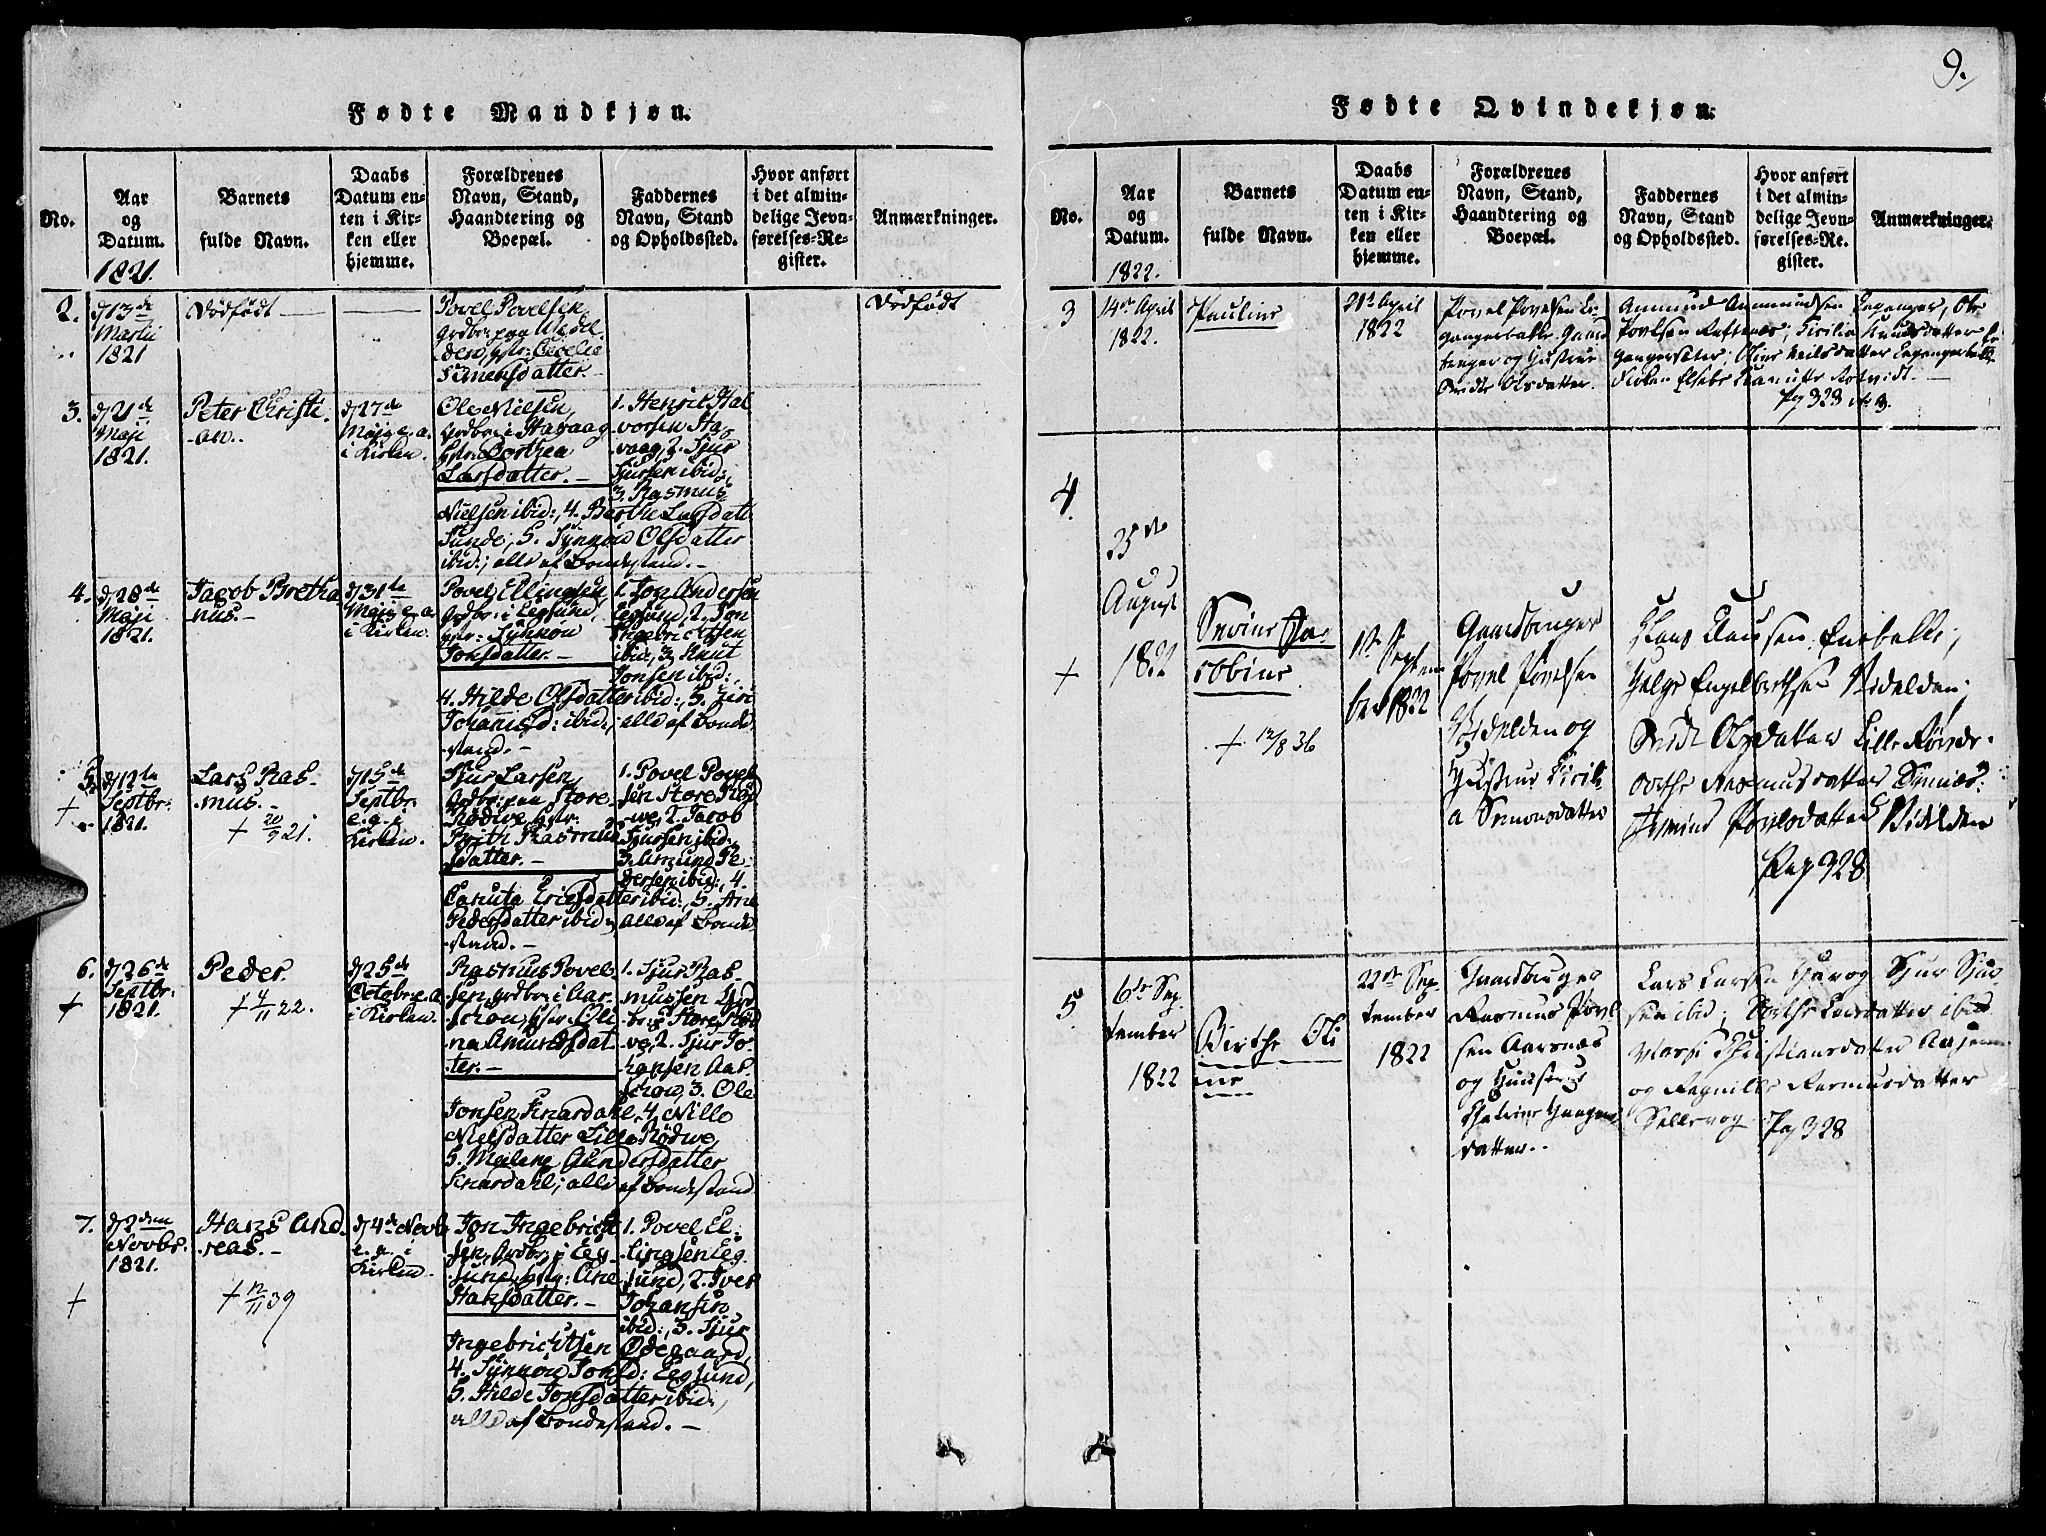 Fødte Mandkjøn.
No.
Aar
og
Datum.
1821.
Barnets
fulde Navn.
Daabs
Datum en-
ten i Kir-
ken eller
hjemme.
Forældrenes
Navn, Stand,
Haandtering og
Boepæl.
Faddernes
Navn, Stand
og Opholdssted.
Hvor anført
i det almin-
delige Jevn-
førelses-Re-
gister.
Anmærkninger.
2.
d 13de
Martii
1821
Dødfødt
Povel Povelsen
Grdbr: paa Widel
den, hstr: Cecelie
Simensdatter.
Dødfødt
3.
d 21de
Maji
1821.
Peter Christi
-an.
d 27de
Maji e. a.
i Kirken.
Ole Nielsen,
Grdbr: i Havaag
hstr: Dorthea
Larsdatter. -
1. Henrik Hal
vorsen Ha-
vaag, 2. Sjur
Sjursen ibid:,
3. Rasmus
Nielsen ibid:, 4. Berthe Larsdatt
Sunde, 5. Synnøw Olsdatter
ibid:; alle af Bondestand. -
4.
d 28de
Maji
1821.
Jacob Bretha
nus. -
d 31te
Maji e. a.
i Kirken.
Povel Ellingsen
Grdbr: i Eegsund,
hstr: Synnøw
Jonsdatter. -
1. Jon Andersen
Eegsund, 2. Jon
Ingebrichtsen
ibid:, 3 Knut
Jonsen ibid:,
4. Hilde Olsdatter ibid:, 5. Siri
Johansd: ibid:; alle af Bonde
-stand. -
5.
+
d 12te
Septbr:
1821.
Lars Ras-
mus. -
+ 20/9 21.
d 15de
Septbr:
e. a. i
Kirken.
Sjur Larsen,
Grdbr: paa Store-
Rødwe, hstr:
Brith Rasmus
datter. -
1. Povel Povel
sen Store Rød
-we, 2. Jacob
Sjursen ibid:,
3. Amund Pe-
dersen ibid:, 4.
Canuta Ericsdatter ibid:, 5. Ane
Pedersdatter ibid:; alle af Bonde
-stand. -
6.
+
d 26de
Septbr:
1821.
Peder.
+ 4/11 22.
d 25de
October e. a
i Kirken.
Rasmus Povel-
sen, Grdbr: i Aar-
schou, hstr: Ole
na Amundsdat-
ter. -
1. Sjur Ras-
mussen Grd
br: Store Rød
we, 2. Sjur Jo-
hansen Aar-
schou, 3. Ole
Jonsen Knardahl, 4. Nille
Nielsdatter Lille Rødwe,
5. Malena Gundersdatter
Knardahl; alle af Bondestand.
7.
+
d 2den
Novbr.
1821.
Hans And
reas. -
+ 12/11 39
d 4de Novb
e. a. i
Kirken.
Jon Ingebricht
sen, Grdbr: i Eeg-
sund, hstr: Ane
Hansdatter. -
1. Povel El-
lingsen Eeg-
sund, 2. Iver
Johansen
ibid:, 3. Sjur
Ingebrichtsen Ødegaard,
4. Synnøw Jonsd: Eegsund,
5. Hilde Jonsdatter ibid:,
alle af Bondestand. -
9.
Fødte Qvindekjøn.
No.
Aar
og
Datum.
1822.
Barnets
fulde Navn.
Daabs
Datum en-
ten i Kir-
ken eller
hjemme.
Forældrenes
Navn, Stand,
Haandtering og
Boepæl.
Faddernes
Navn, Stand
og Opholdssted.
Hvor anført
i det almin-
delige Jevn-
førelses-Re-
gister.
Anmærkninger.
3
14de April
1822.
Pauline
21de April
1822
Povel Povelsen
Gaard
og Hustrue
Olsdatter.
Amund Amundsen
Povelsen Refsnes; Cicilia Knudsdatter
Nielsdatter
Pag 323 No 3.
4
+
25de
August
1822
Sevine Ja-
cobine
+ 12/8 36
1te Septem
ber 1822
Gaardbruger
Povel Povelsen
Videlden og
Hustrue Cicili
a Simonsdatter
Klaus Clausen
Helge Engelbrethsen Videlden,
Olsdatter Lille Rødve.
Rasmusdatter
Povelsdatter Videlden
Pag 328
5
6te Sep
tember
1822
Birthe Oli
ne
22de Sep
tember
1822
Gaardbruger
Rasmus Povel
sen Aarsnes
og Hustrue
datter.
Lars Larsen Sjur Sjur
sen ibid; Birthe Larsdatter ibid
Christiansdatter
og Ragnille Rasmusdatter
Pag 328